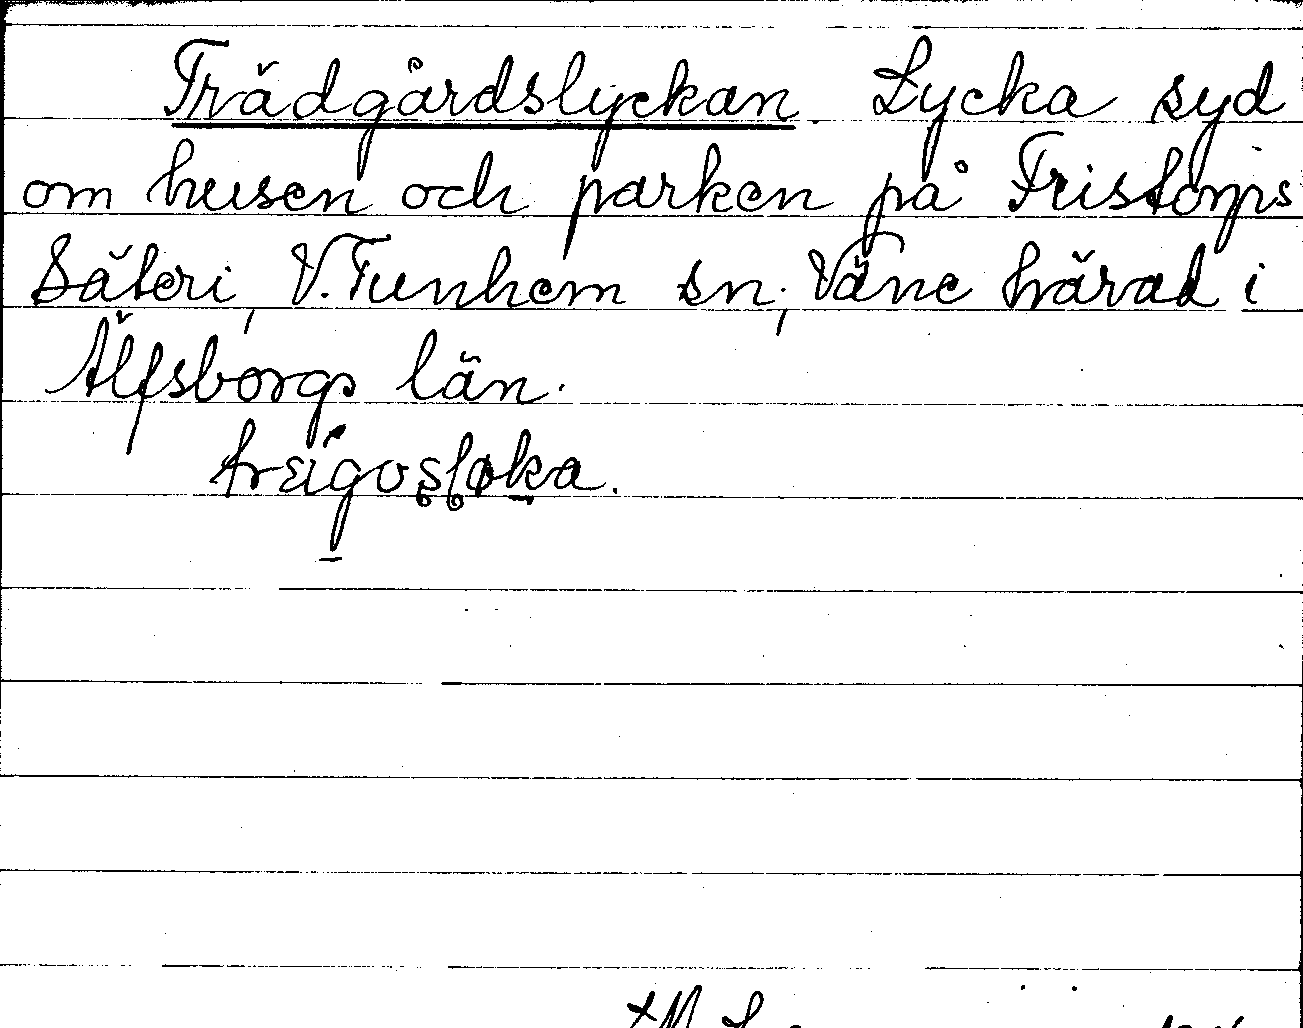 Trädgårdslyckan. Lycka syd
om husen och parken på Fristorps
Säteri, V. Tunhem sn; Väne härad i
Älfsborgs län.